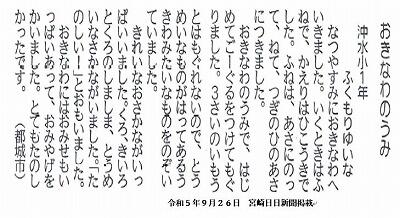 おきなわのうみ
沖水小1年
ふくもりゆいな
なつやすみにおきなわへ
いきました。いくときはふ
ねで、かえりはひこうきで
した。ふねは、あさにのっ
て、ねて、つぎのひのあさ
につきました。
おきなわのうみで、はじ
めてごーぐるをつけてもぐ
りました。3さいのいもう
とはもぐれないので、とう
めいなものがはってあるう
きわみたいなものをのぞい
ていました。
きれいなおさかながいっ
ぱいいました。くろ、きいろ
とくろのしましま、とうめ
いなさかながいました。「た
のしい!」とおもいました。
おきなわにはおみせもい
っぱいあって、おみやげを
かいました。とてもたのし
かったです。 (都城市)
令和5年9月26日 宮崎日日新聞掲載